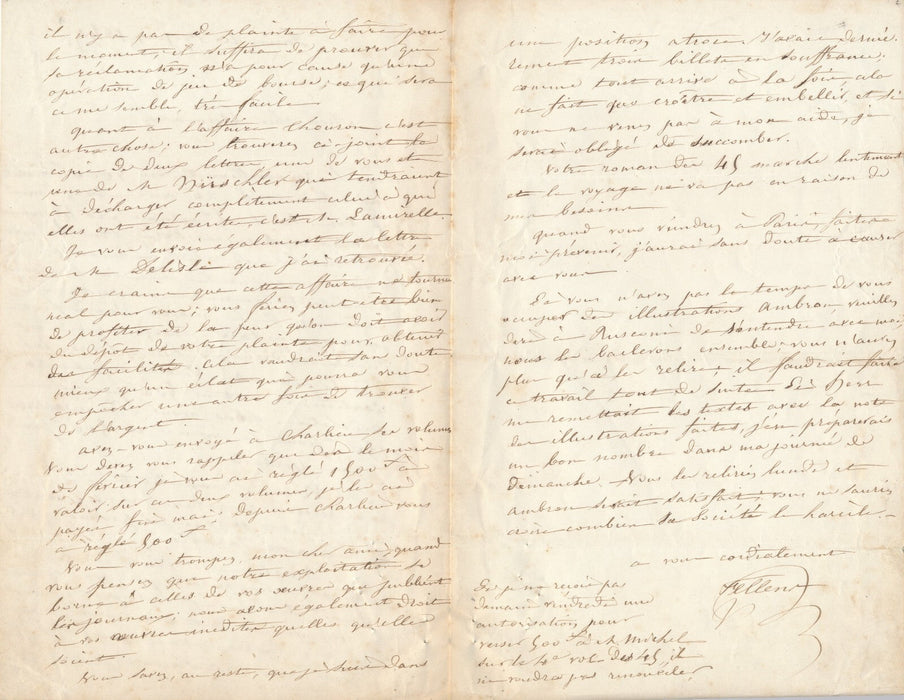 il n'y a pas de plainte à faire pour
le moment; il suffira de prouver que
sa réclamation n'a pour cause qu'une
opération de jeu de bourse; ce qui sera
ce me semble, très facile.
quant à l'affaire Chouron c'est
autre chose; vous trouverez ci-joint la
copie de deux lettres, une de vous et
une de M. Hirschler qui tendraient
à décharger complètement celui à qui
elles ont été écrites, c'est M.
Je vous envoie également la lettre
de M Delisle que j'ai retrouvée.
Je crains que cette affaire ne tourne
mal pour vous; vous feriez peut-être bien
de profiter de la peur qu'on doit avoir
du dépôt de votre plainte pour obtenir
des facilités. Cela vaudrait sans doute
mieux qu'un éclat qui pourra vous
empêcher une autre fois de trouver
de l'argent.
avez-vous envoyé à Charlieu ses volumes
Vous devez vous rappeler que dans le mois
de février je vous ai réglé 1500 f à
valoir sur au deux volumes, je les ai
payés fin mai. depuis Charlieu vous
a réglé 500 f.
Vous vous trompez, mon cher ami, quand
vous pensez que notre exploitation se
borne à celles de vos œuvres que publient
les journaux; nous avons également droit
à vos œuvres inédites quelles qu'elles
soient.
Vous savez, au reste, que je suis dans
une position atroce. J'avais dernié-
rement trois billets en souffrance;
comme tout arrive à la fois cela
ne fait que croître et embellir, et si
vous ne venez pas à mon aide, je
serai obligé de succomber.
Votre roman des 45 marche lentement
et le voyage ne va pas en raison de
mes besoins
quand vous viendrez à Paris faites
moi prévenir, j'aurai sans doute à causer
avec vous
Si vous n'avez pas le temps de vous
occuper des illustrations Ambroise, veuillez
dire à Rusconi de s'entendre avec moi,
nous les baclerons ensemble; vous n'aurez
plus qu'à les relire; il faudrait faire
ce travail tout de suite. Si
me remettait les textes avec la note
des illustrations faites, j'en préparerais
un bon nombre dans ma journée de
Dimanche. Vous les reliriez lundi et
serait satisfait; vous ne sauriez
croire combien sa Société le harcèle.
a vous cordialement
Si je ne reçois pas
demain vendredi une
autorisation pour
verser 500 f à M. Michel
sur le 4e vol des 45, il
ne voudra pas renouveler.